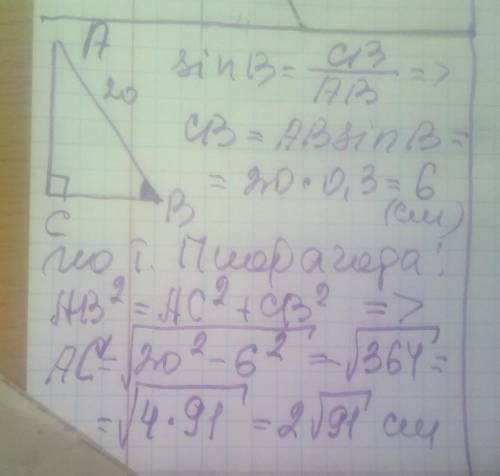 A
20
C
B
sin B = CB/AB =>
CB = AB sin B =
= 20 · 0,3 = 6
(см)
по т. Пифагора:
AB² = AC² + CB² =>
AC = √(20² - 6²) = √364 =
= √(4 · 91) = 2√91 см